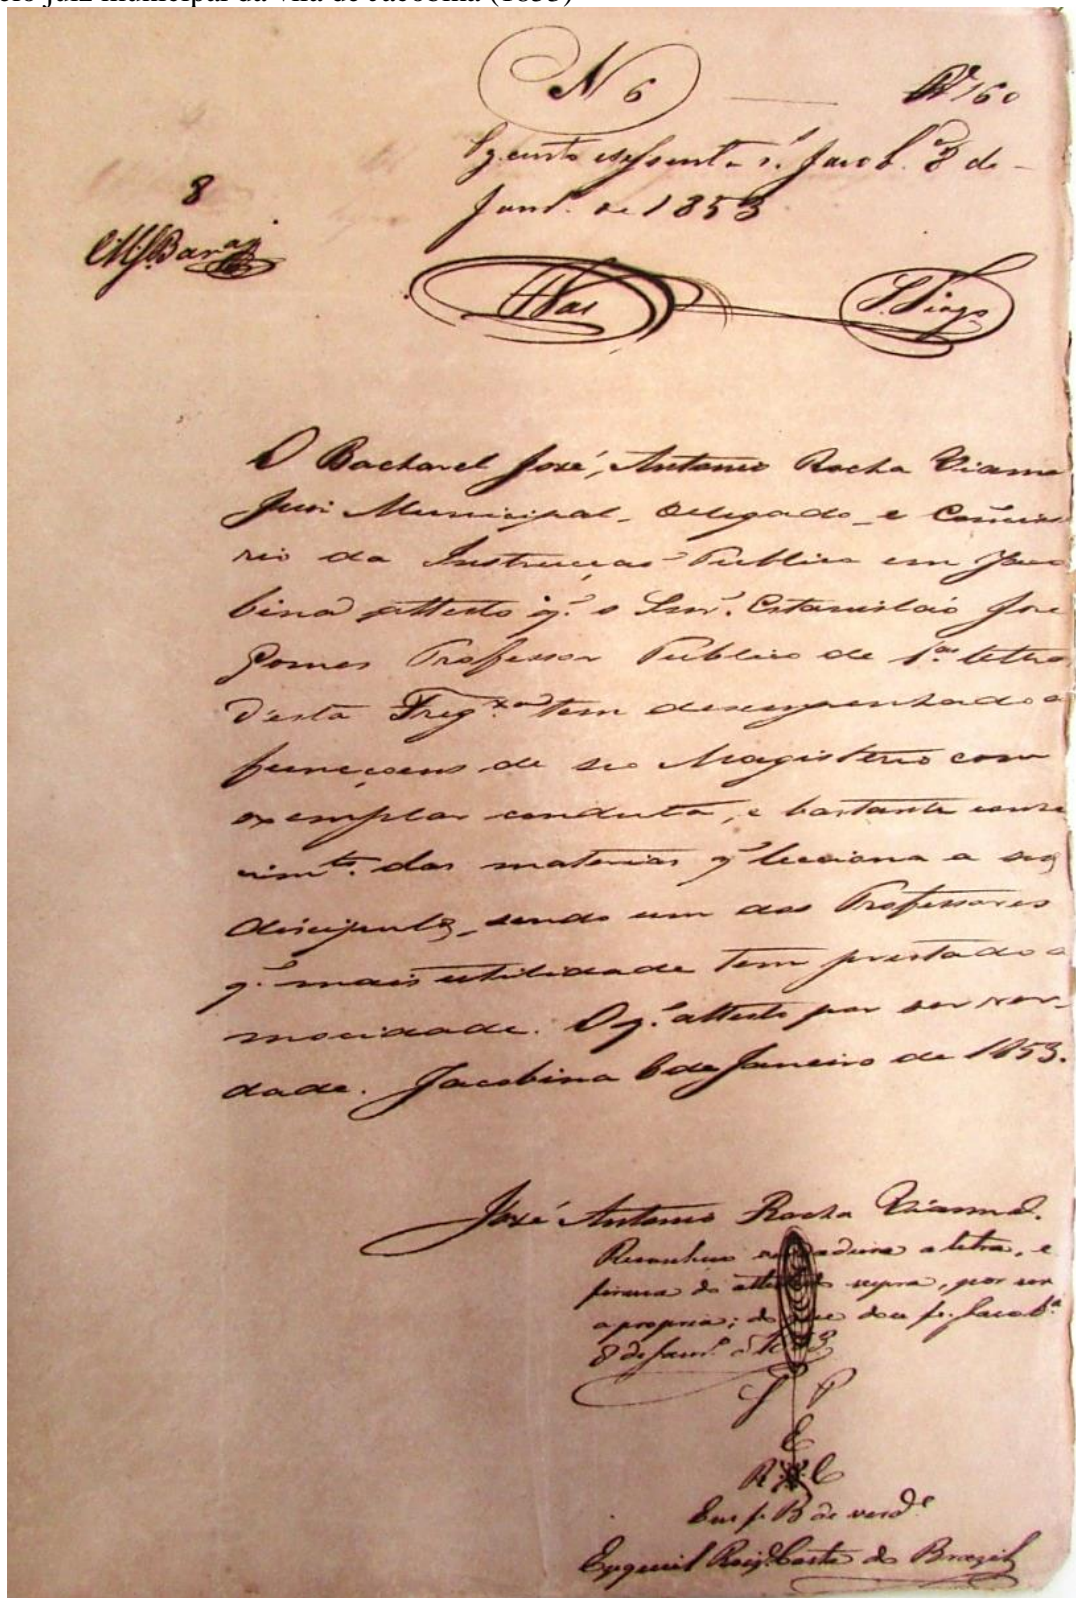 pelo juiz municipal da vila de Jacobina (1853)
N 6 Rs 160
Pg. cento e sessenta rs. Jacob.ª 8 de
Janr.º de 1853
8
O Bacharel José Antonio Rocha Vianna
Juiz Municipal, Delegado e Comissa
rio da Instrucção Publica em Jaco
bina attesto q.' o Snr. Estanisláo José
Gomes Professor Publico de 1.as letras
d'esta Freg.xa tem desempenhado a
funcçoens de seo Magisterio com
exemplar conducta, e bastante conhe
cim.to das materias q.' lecciona a seus
discipulos, sendo um dos Professores
q.' mais utilidade tem prestado a
mocidade. O q.' attesto por ser ver-
dade. Jacobina 8 de Janeiro de 1853.
José Antonio Rocha Vianna.
Reconheco verdadeira a letra, e
firma do attestado supra, por ser
a propria; do que dou fe. Jacob.ª
8 de Janr.º de 1853
Em f. de verd.e
do Brazil